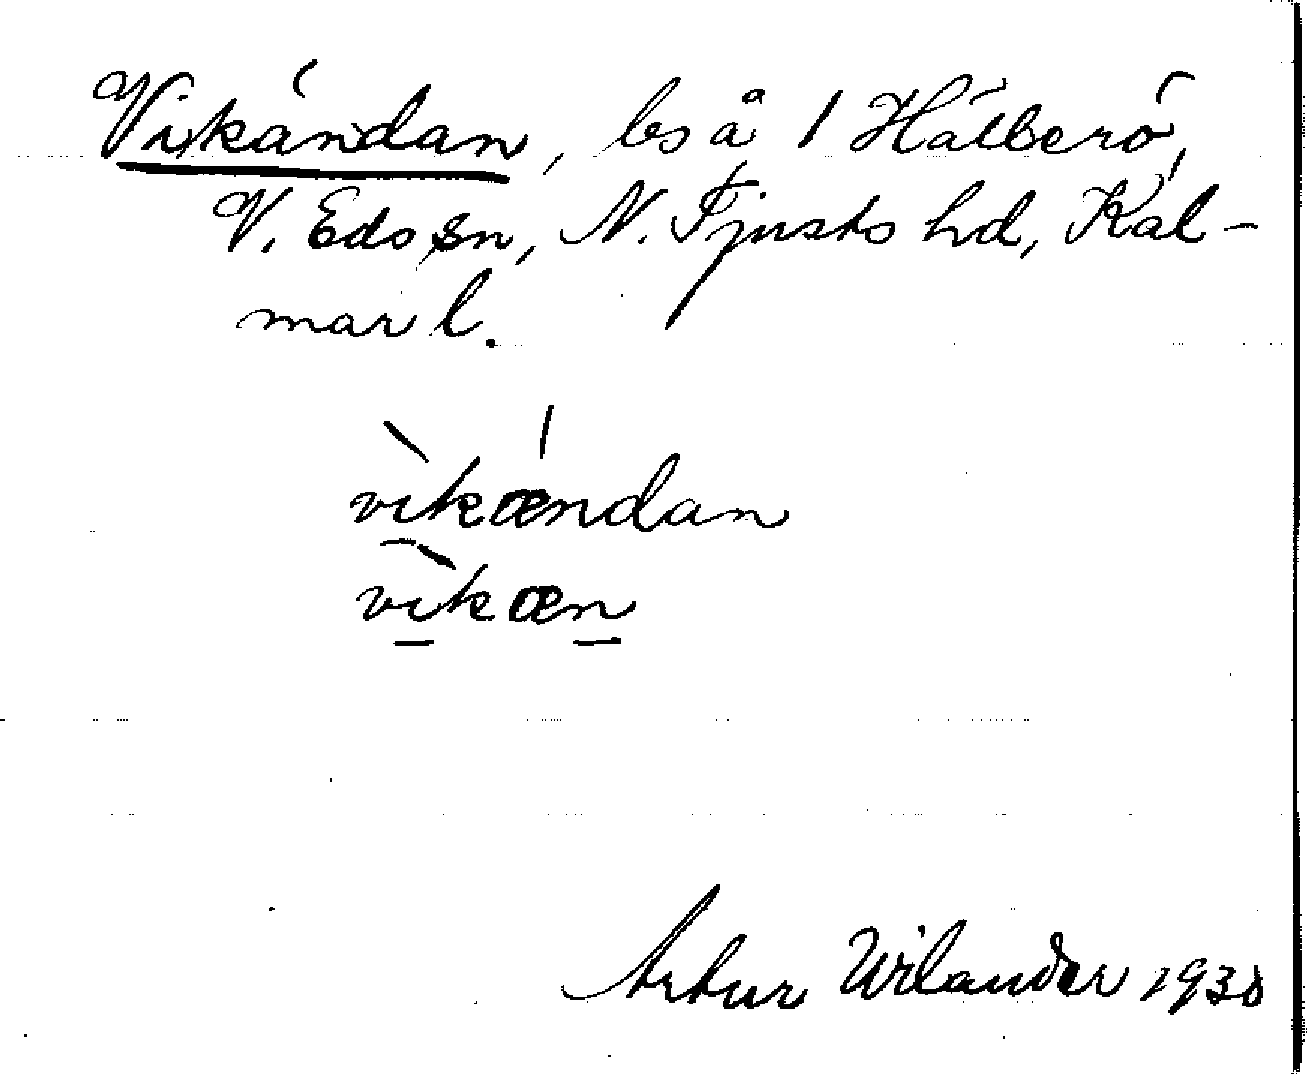 Vikändan, bs å 1 Hälberö,
V. Eds sn, N. Tjusts hd, Kal-
mar l.
vìkǽndan
vìkæn
Artur Wilander 1930